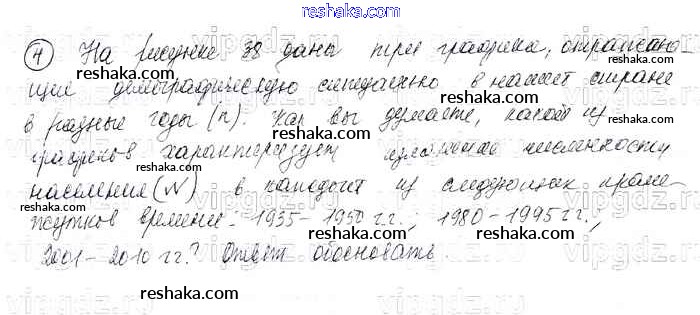 reshaka.com
④ На рисунке 38 даны три графика, отражаю-
щие демографическую ситуацию в нашей стране
в разные годы (n). Как вы думаете, какой из
графиков характеризует изменение численности
населения (N) в каждый из следующих проме-
жутков времени: 1935-1950 гг.; 1980-1995 гг.;
2001-2010 гг.? Ответ обосновать.
reshaka.com
reshaka.com
reshaka.com
reshaka.com
reshaka.com
reshaka.com
reshaka.com
reshaka.com
reshaka.com
vipgdz.com